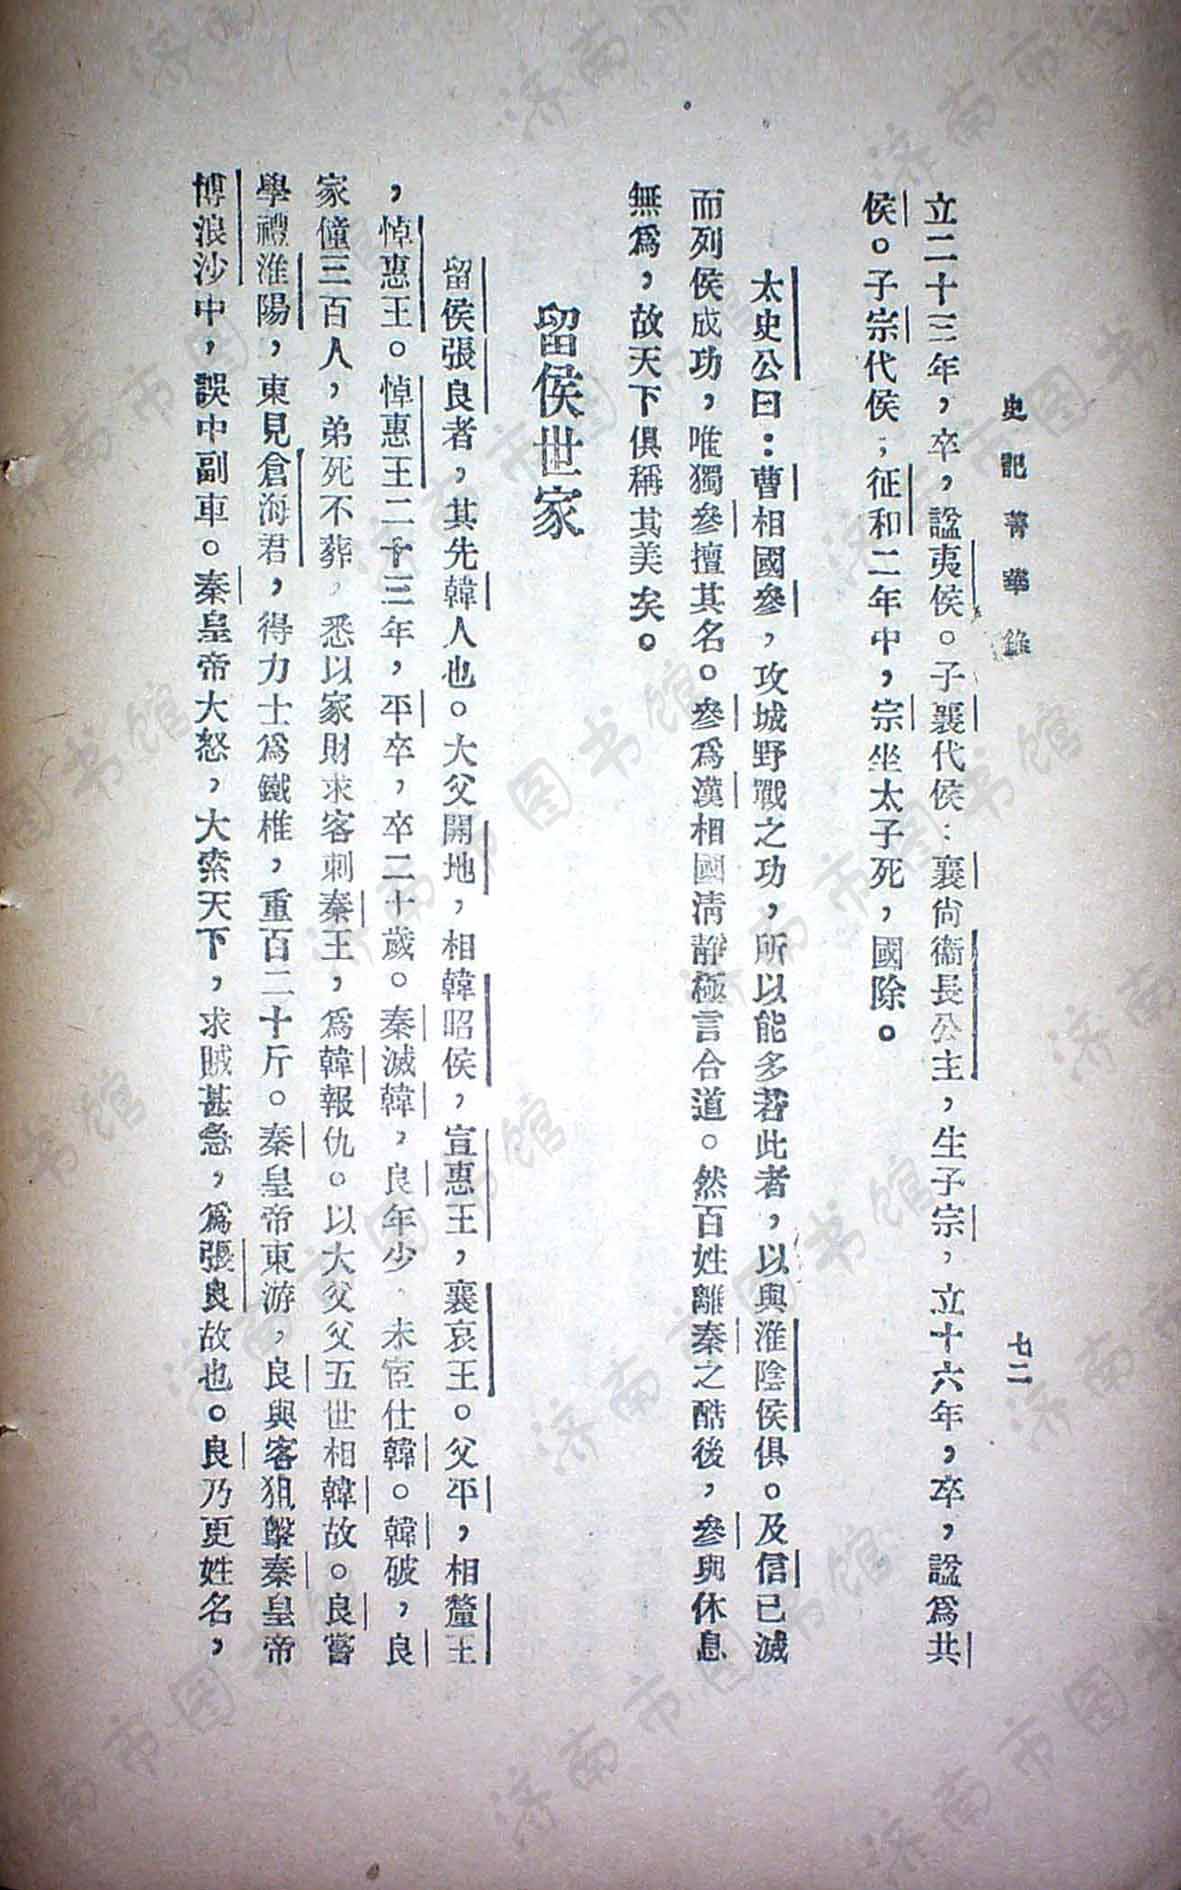 史記菁華錄
七二
立二十三年，卒，諡夷侯。子襄代侯：襄尙衞長公主，生子宗，立十六年，卒，諡爲共
侯。子宗代侯；征和二年中，宗坐太子死，國除。
太史公曰：曹相國參，攻城野戰之功，所以能多若此者，以與淮陰侯俱。及信已滅
而列侯成功，唯獨參擅其名。參爲漢相國淸靜極言合道。然百姓離秦之酷後，參與休息
無爲，故天下俱稱其美矣。
留侯世家
留侯張良者，其先韓人也。大父開地，相韓昭侯，宣惠王，襄哀王。父平，相釐王
，悼惠王。悼惠王二十三年，平卒，卒二十歲。秦滅韓，良年少，未宦仕韓。韓破，良
家僮三百人，弟死不葬，悉以家財求客刺秦王，爲韓報仇。以大父父五世相韓故。良嘗
學禮淮陽，東見倉海君，得力士爲鐵椎，重百二十斤。秦皇帝東游，良與客狙擊秦皇帝
博浪沙中，誤中副車。秦皇帝大怒，大索天下，求賊甚急，爲張良故也。良乃更姓名，
济南市图书馆